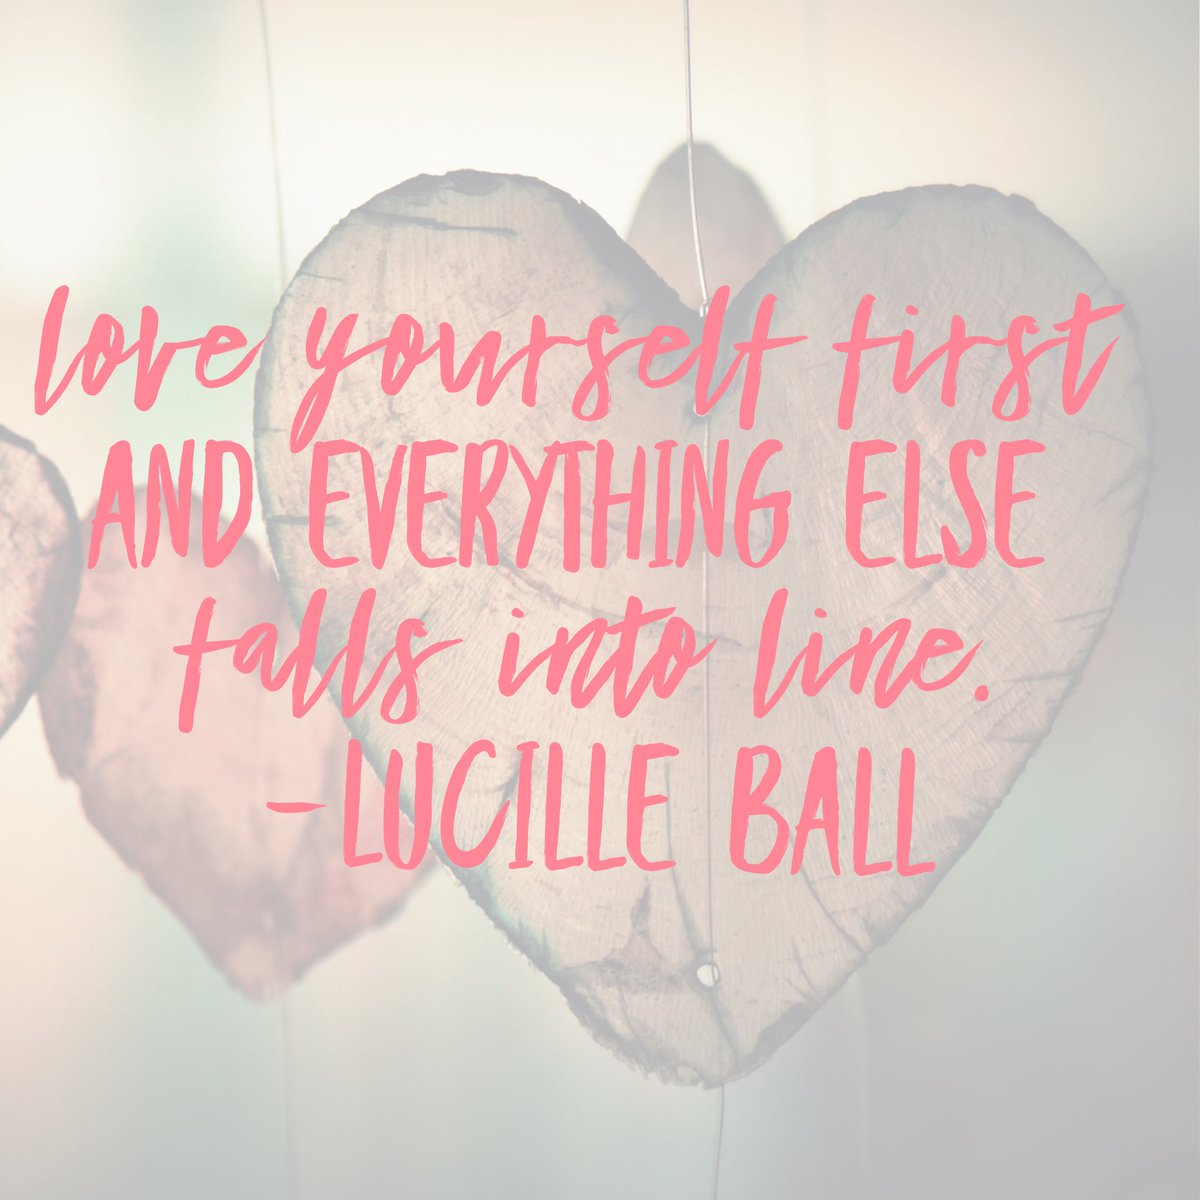 love yourself first
AND EVERYTHING ELSE
falls into line.
-LUCILLE BALL